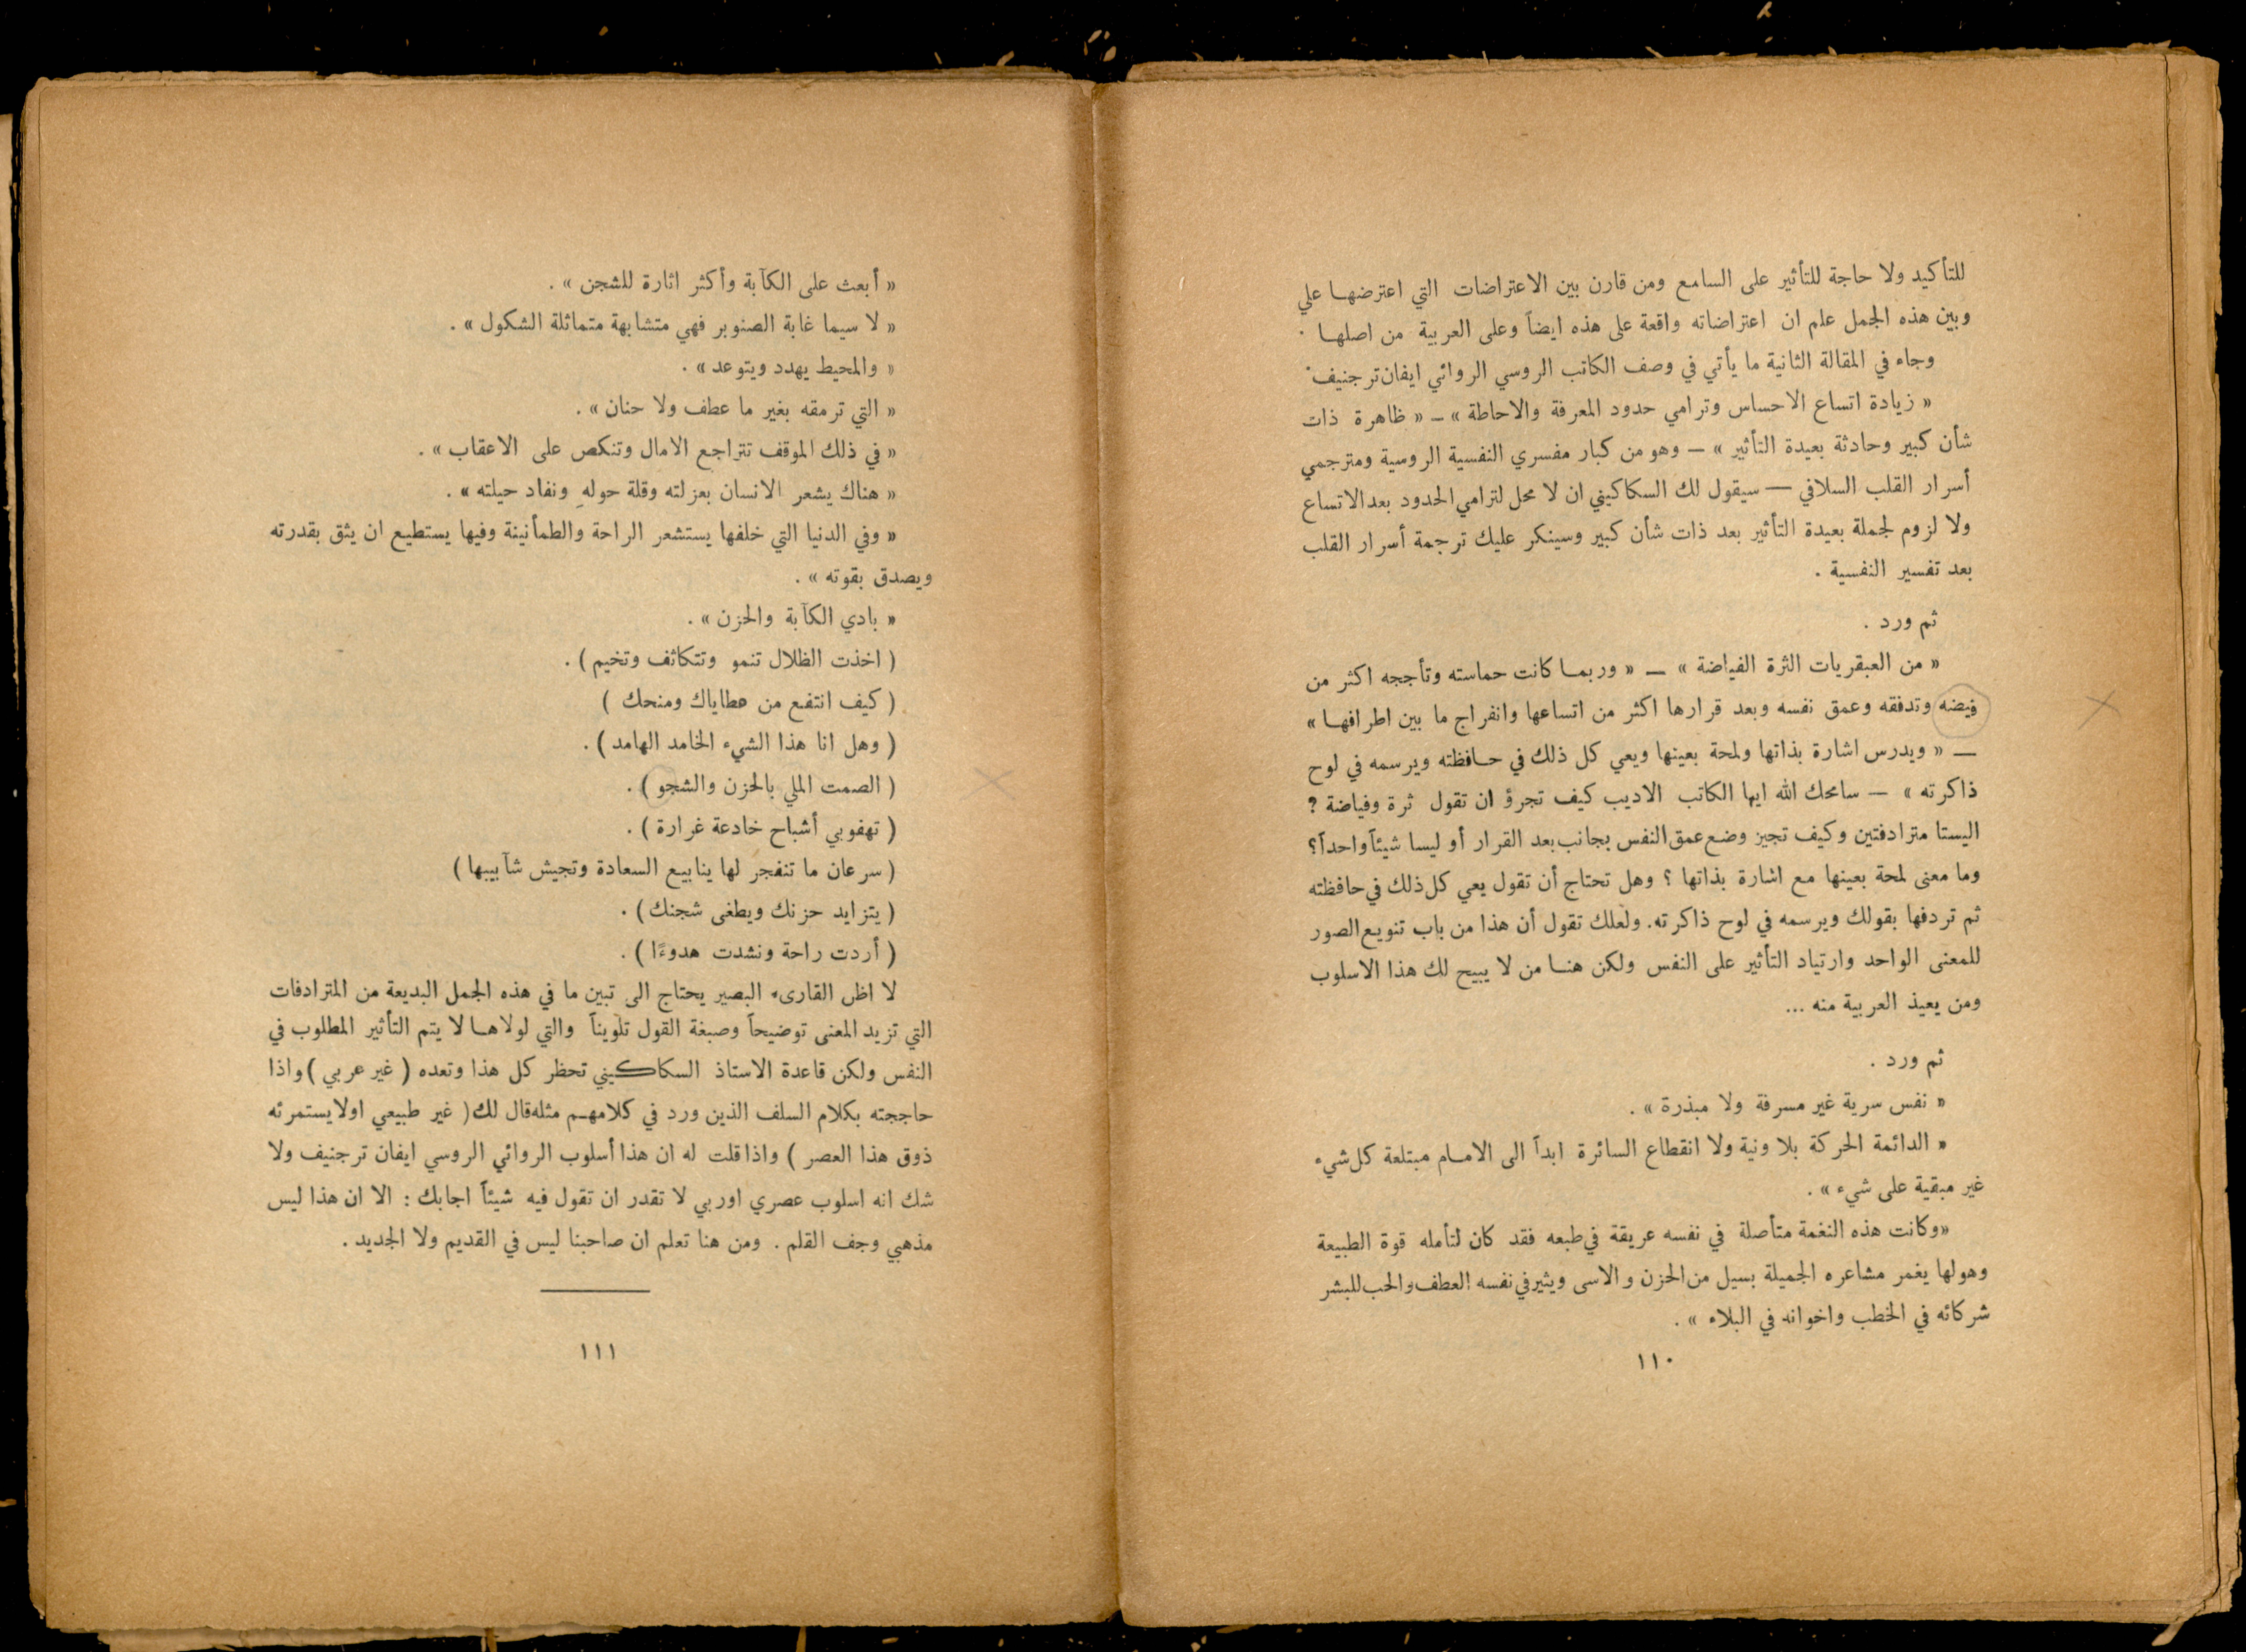 للتأكيد ولا حاجة للتأثير على السامع ومن قارن بين الاعتراضات التي اعترضها علي
وبين هذه الجمل علم ان اعتراضاته واقعة على هذه ايضاً وعلى العربية من اصلها .
وجاء في المقالة الثانية ما يأتي في وصف الكاتب الروسي الروائي ايفان ترجنيف .
« زيادة اتساع الاحساس وترامي حدود المعرفة والاحاطة » — « ظاهرة ذات
شأن كبير وحادثة بعيدة التأثير » — وهو من كبار مفسري النفسية الروسية ومترجمي
أسرار القلب السلافي — سيقول لك السكاكيني ان لا محل لترامي الحدود بعد الاتساع
ولا لزوم لجملة بعيدة التأثير بعد ذات شأن كبير وسينكر عليك ترجمة أسرار القلب
بعد تفسير النفسية .
ثم ورد .
« من العبقريات الثرة الفياضة » — « وربما كانت حماسته وتأججه اكثر من
فيضه وتدفقه وعمق نفسه وبعد قرارها اكثر من اتساعها وانفراج ما بين اطرافها »
— « ويدرس اشارة بذاتها ولمحة بعينها ويعي كل ذلك في حافظته ويرسمه في لوح
ذاكرته » — سامحك الله ايها الكاتب الاديب كيف تجرؤ ان تقول ثرة وفياضة ؟
اليستا مترادفتين وكيف تجيز وضع عمق النفس بجانب بعد القرار أو ليسا شيئاً واحداً؟
وما معنى لمحة بعينها مع اشارة بذاتها ؟ وهل تحتاج أن تقول يعي كل ذلك في حافظته
ثم تردفها بقولك ويرسمه في لوح ذاكرته. ولعلك تقول أن هذا من باب تنويع الصور
للمعنى الواحد وارتياد التأثير على النفس ولكن هنا من لا يبيح لك هذا الاسلوب
ومن يعيذ العربية منه ...
ثم ورد .
« نفس سرية غير مسرفة ولا مبذرة » .
« الدائمة الحركة بلا ونية ولا انقطاع السائرة ابداً الى الامام مبتلعة كل شيء
غير مبقية على شيء » .
«وكانت هذه النغمة متأصلة في نفسه عريقة في طبعه فقد كان لتأمله قوة الطبيعة
وهولها يغمر مشاعره الجميلة بسيل من الحزن والاسى ويثير في نفسه العطف والحب للبشر
شركائه في الخطب واخوانه في البلاء » .
١١٠
« أبعث على الكآبة وأكثر اثارة للشجن » .
« لا سيما غابة الصنوبر فهي متشابهة متماثلة الشكول » .
« والمحيط يهدد ويتوعد » .
« التي ترمقه بغير ما عطف ولا حنان » .
« في ذلك الموقف تتراجع الامال وتنكص على الاعقاب » .
« هناك يشعر الانسان بعزلته وقلة حولهِ ونفاد حيلته » .
« وفي الدنيا التي خلفها يستشعر الراحة والطمأنينة وفيها يستطيع ان يثق بقدرته
ويصدق بقوته » .
« بادي الكآبة والحزن » .
( اخذت الظلال تنمو وتتكاثف وتخيم ) .
( كيف انتفع من عطاياك ومنحك )
( وهل انا هذا الشيء الخامد الهامد ) .
( الصمت الملي بالحزن والشجو ) .
( تهفوبي أشباح خادعة غرارة ) .
( سرعان ما تنفجر لها ينابيع السعادة وتجيش شآبيبها )
( يتزايد حزنك ويطغى شجنك ) .
( أردت راحة ونشدت هدوءًا ) .
لا اظن القارىء البصير يحتاج الى تبين ما في هذه الجمل البديعة من المترادفات
التي تزيد المعنى توضيحاً وصبغة القول تلويناً والتي لولاها لا يتم التأثير المطلوب في
النفس ولكن قاعدة الاستاذ السكاكيني تحظر كل هذا وتعده ( غير عربي ) واذا
حاججته بكلام السلف الذين ورد في كلامهم مثله قال لك ( غير طبيعي اولا يستمرئه
ذوق هذا العصر ) واذا قلت له ان هذا أسلوب الروائي الروسي ايفان ترجنيف ولا
شك انه اسلوب عصري اوربي لا تقدر ان تقول فيه شيئاً اجابك : الا ان هذا ليس
مذهبي وجف القلم . ومن هنا تعلم ان صاحبنا ليس في القديم ولا الجديد .
١١١